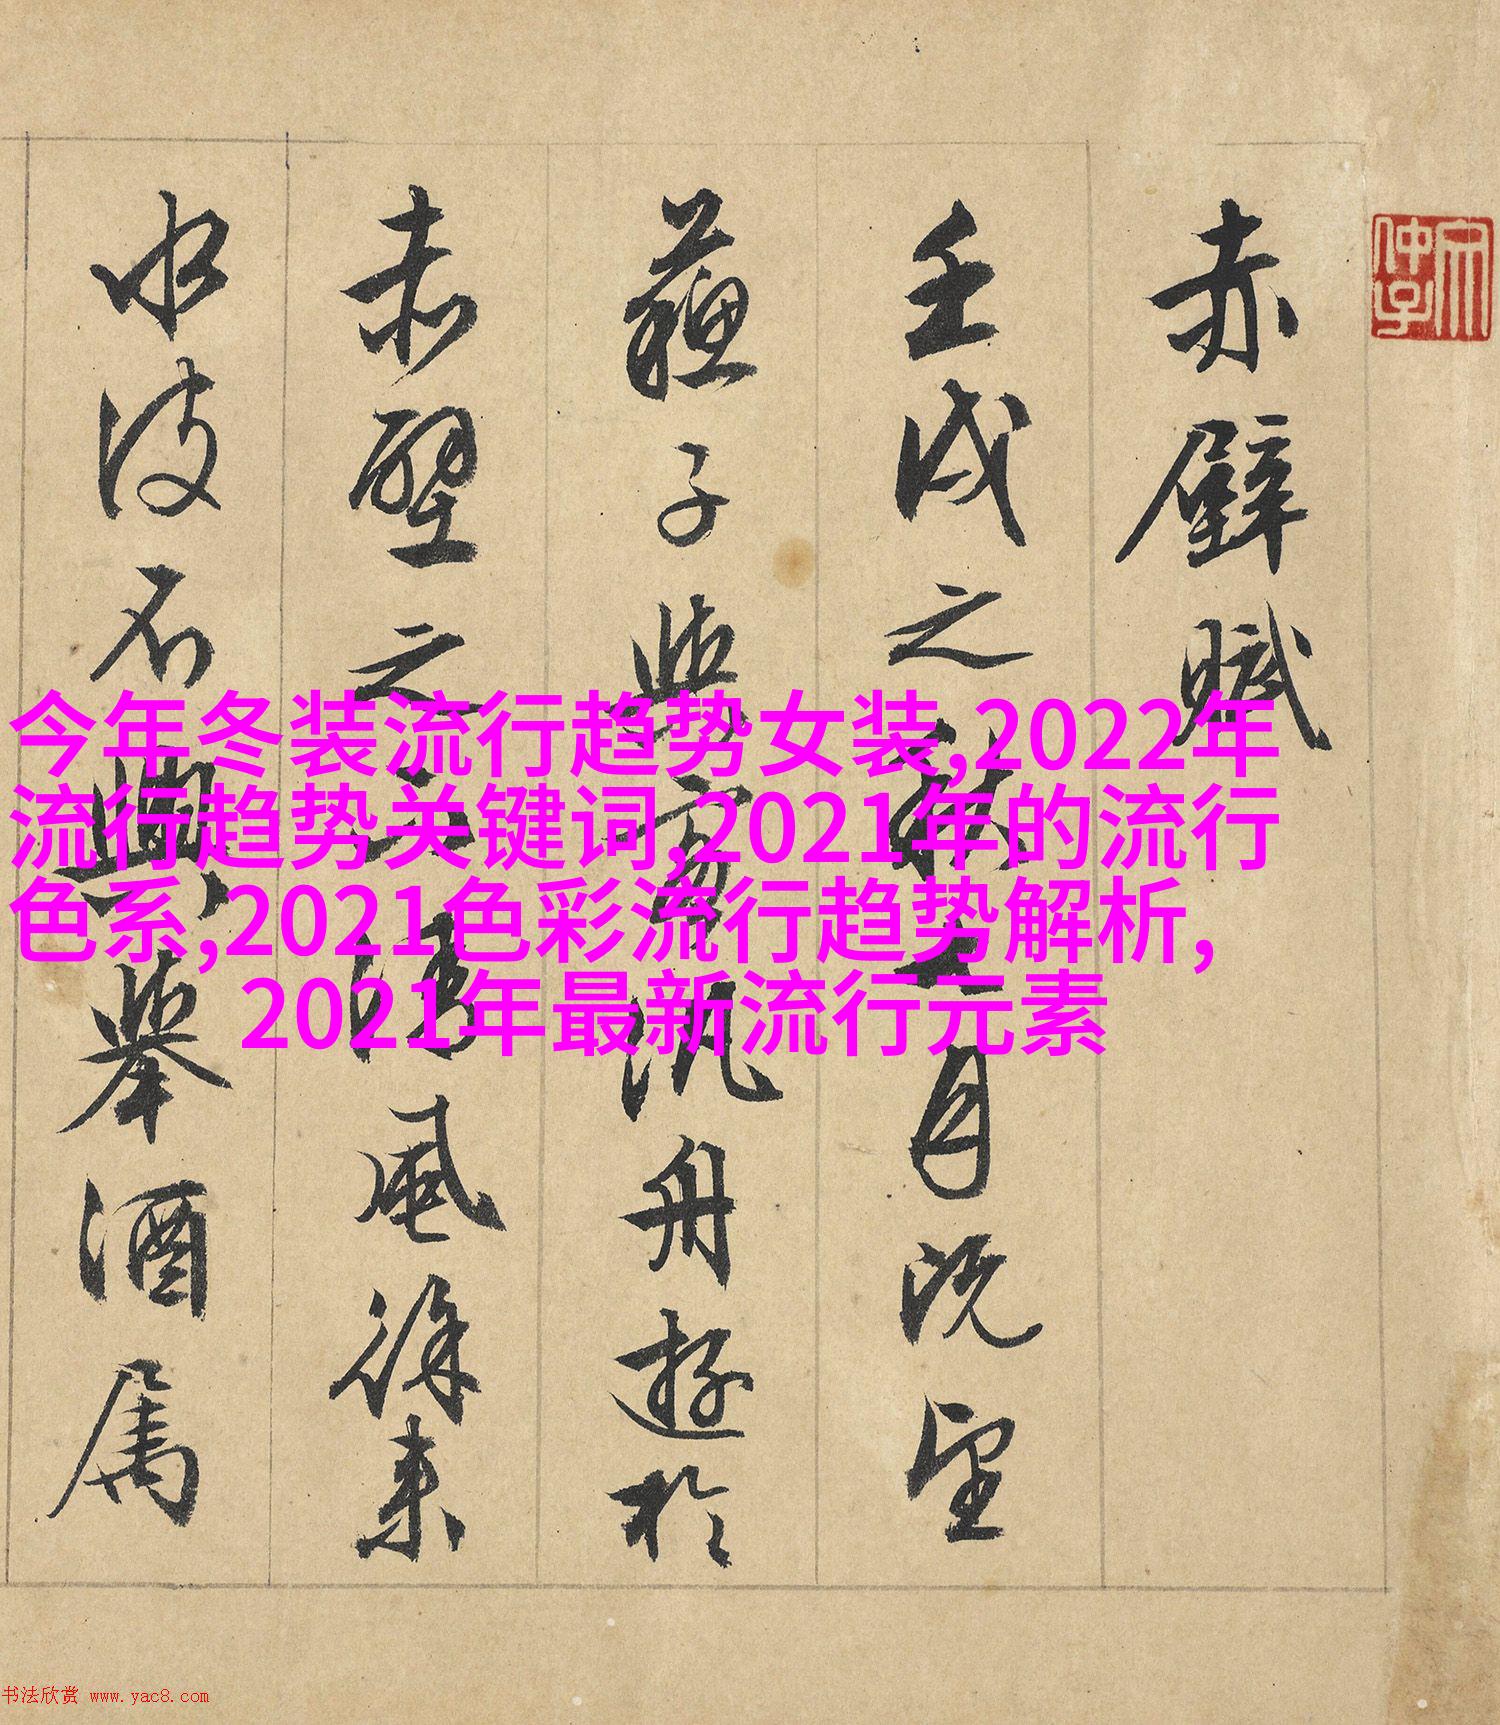 赤壁賦
壬戌之秋七月既望
蘇子與客汎舟遊於
赤壁之下清風徐来
水波不興舉酒属
今年冬装流行趋势女装,2022年
流行趋势关键词,2021年的流行
色系,2021色彩流行趋势解析,
2021年最新流行元素
书法欣赏 www.yac8.com